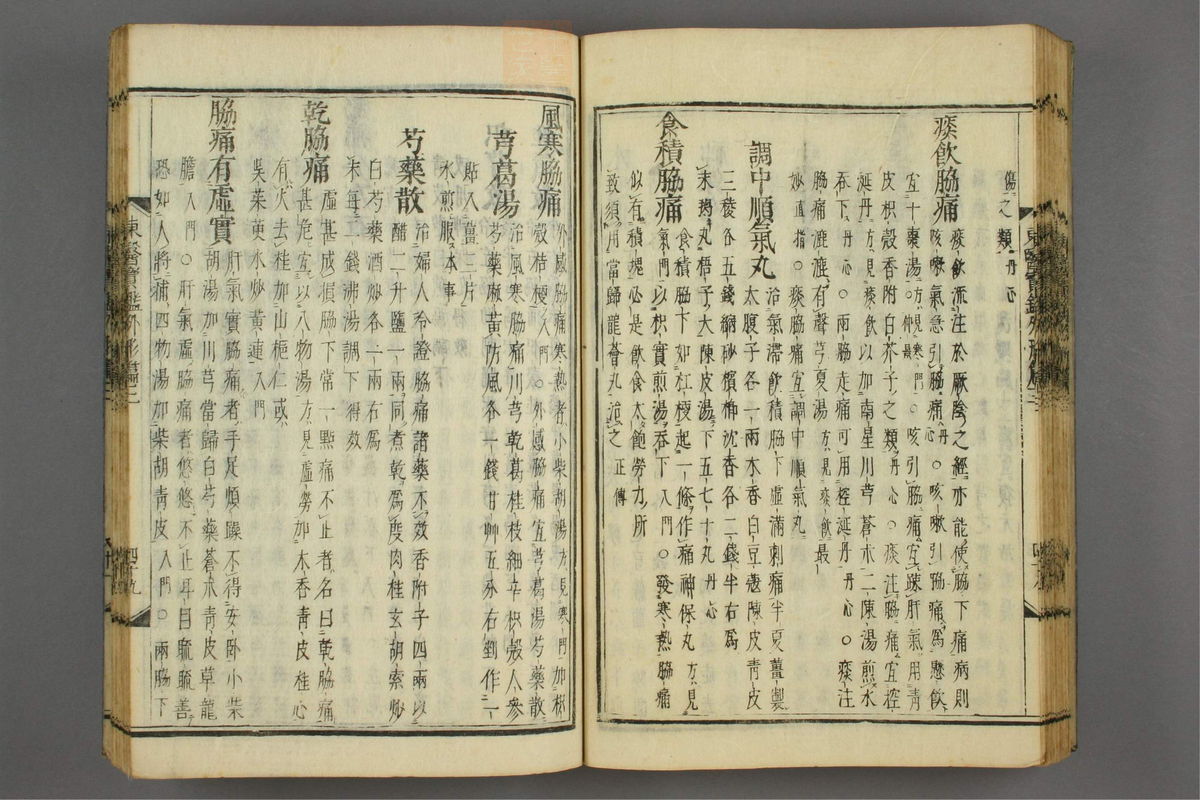 傷之類丹心
痰飲脇痛痰飲流注於厥陰之經亦能使脇下痛病則
咳嗽氣急引脇痛丹心○咳嗽引脇痛爲懸飲
宜十棗湯方見寒門仲景○咳引脇痛宜疎肝氣用青
皮枳殼香附白芥子之類丹心○痰注脇痛宜控
涎丹方見痰飲以加南星川芎蒼朮二陳湯煎水
吞下丹心○兩脇走痛可用控涎丹丹心○痰注
脇痛漉漉有聲芎夏湯方見痰飲最
妙直指○痰脇痛宜調中順氣丸
調中順氣丸治氣滯飲積脇下虛滿刺痛半夏薑製
大腹子各一兩木香白豆蔻陳皮青皮
三稜各五錢縮砂檳榔沈香各二錢半右爲
末搗丸梧子大陳皮湯下五七十丸丹心
食積脇痛食積脇下如杠梗起一條作痛神保丸方見
氣門以枳實煎湯吞下入門○發寒熱脇痛
似有積塊必是飲食太飽勞力所
致須用當歸龍薈丸治之正傳
東醫寶鑑外形篇三
風寒脇痛外感脇痛寒熱者小柴胡湯方見寒門加枳
殼桔梗入門○外感脇痛宜芎葛湯芍藥散
芎葛湯治風寒脇痛川芎乾葛桂枝細辛枳殼人參
芍藥麻黃防風各一錢甘艸五分右剉作一
貼入薑三片
水煎服本事
芍藥散治婦人冷證脇痛諸藥不效香附子四兩以
醋二升鹽一兩同煮乾爲度肉桂玄胡索炒
白芍藥酒炒各一兩右爲
末每二錢沸湯調下得效
乾脇痛虛甚成損脇下常一點痛不止者名曰乾脇痛
甚危宜以八物湯方見虛勞加木香青皮桂心
有火去桂加山梔仁或
吳茱萸水炒黃連入門
脇痛有虛實肝氣實脇痛者手足煩躁不得安臥小柴
胡湯加川芎當歸白芍藥蒼朮青皮草龍
膽入門○肝氣虛脇痛者悠悠不止耳目䀮䀮善
恐如人將捕四物湯加柴胡青皮入門○兩脇下
東醫寶鑑外形篇三
四十九